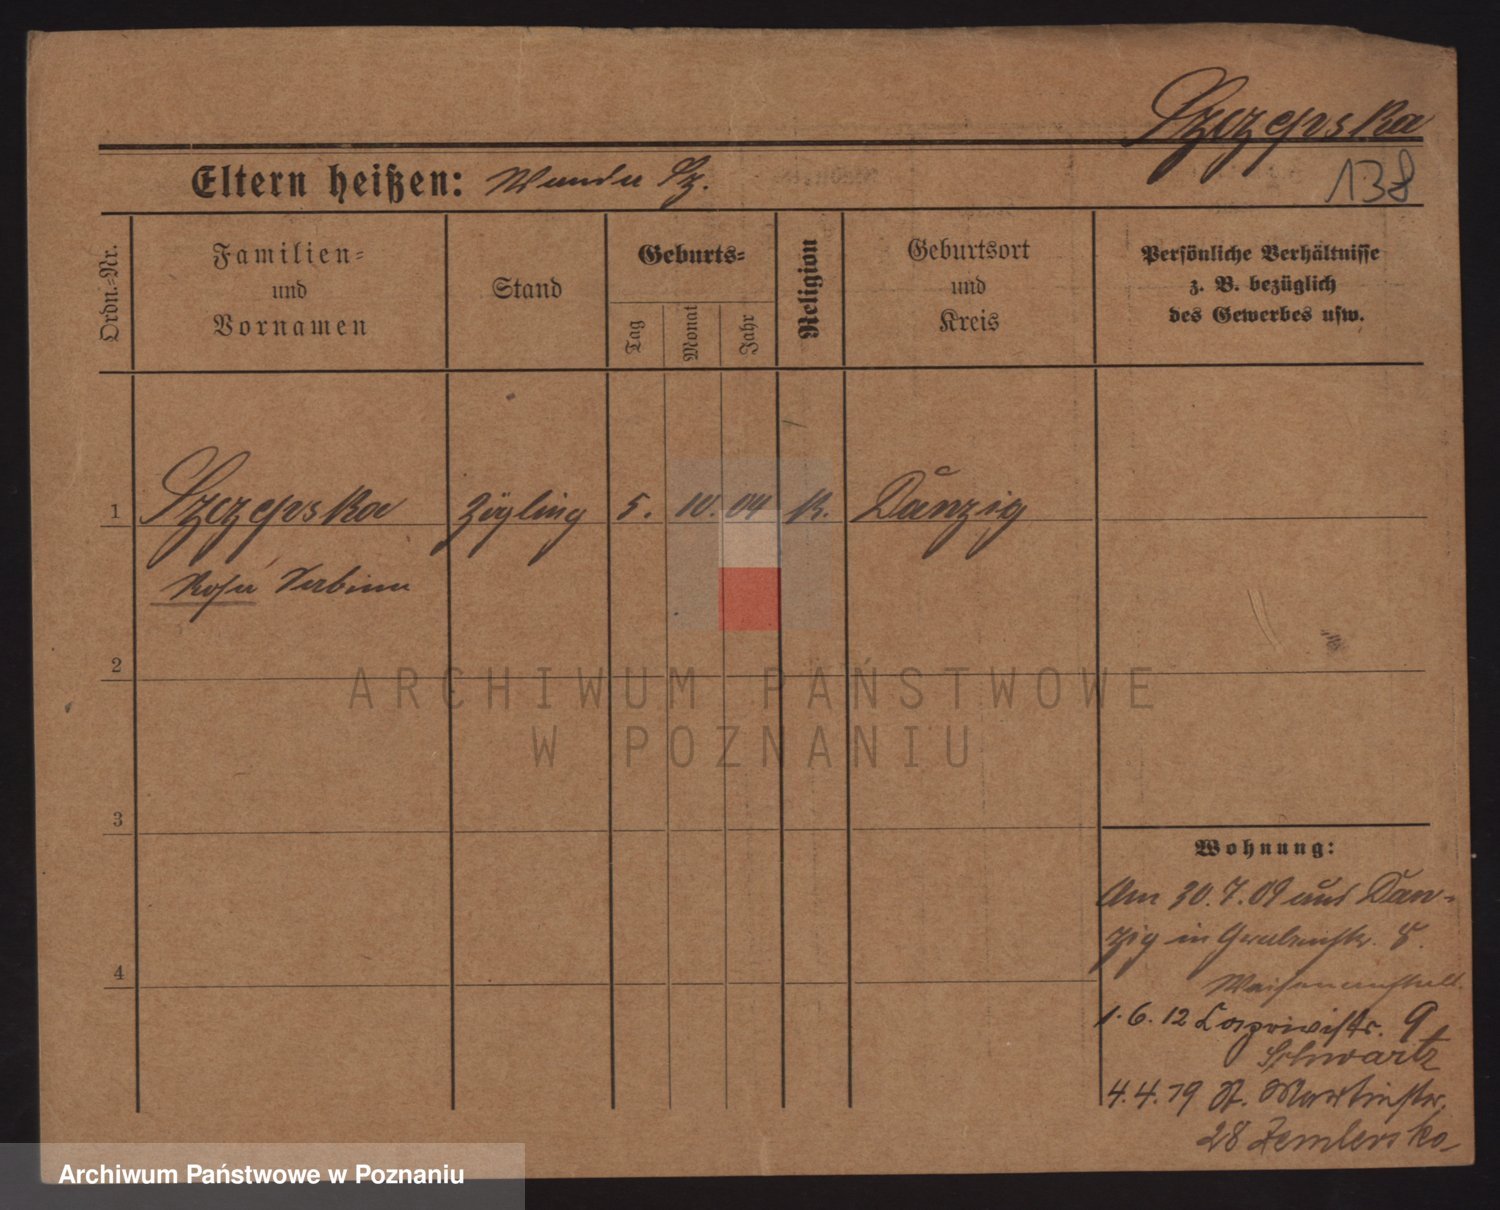 Szczepska
138
Eltern heißen: Wanda Sz.
Ordn.-Nr.
Familien-
und
Vornamen
Stand
Geburts-
Tag
Monat
Jahr
Religion
Geburtsort
und
Kreis
Persönliche Verhältnisse
z. B. bezüglich
des Gewerbes usw.
1 Szczepska Zögling 5. 10. 04 K. Danzig
Rosa Sabina
2
ARCHIWUM PAŃSTWOWE
W POZNANIU
3
Wohnung:
Am 30.7.09 aus Dan-
zig in Grabenstr. 8.
4
Waisenanstalt.
1.6.12 Caprivistr. 9
Schwartz
4.4.19 St. Martinstr.
28 Zemlerska
Archiwum Państwowe w Poznaniu